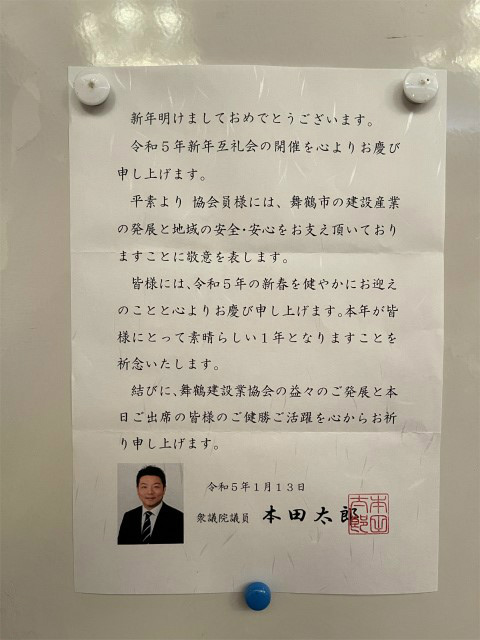 新年明けましておめでとうございます。
令和５年新年互礼会の開催を心よりお慶び
申し上げます。
平素より 協会員様には、舞鶴市の建設産業
の発展と地域の安全･安心をお支え頂いており
ますことに敬意を表します。
皆様には､令和５年の新春を健やかにお迎え
のことと心よりお慶び申し上げます｡本年が皆
様にとって素晴らしい１年となりますことを
祈念いたします。
結びに､舞鶴建設業協会の益々のご発展と本
日ご出席の皆様のご健勝ご活躍を心からお祈
り申し上げます。
令和５年１月１３日
衆議院議員 本田太郎
本田
太郎